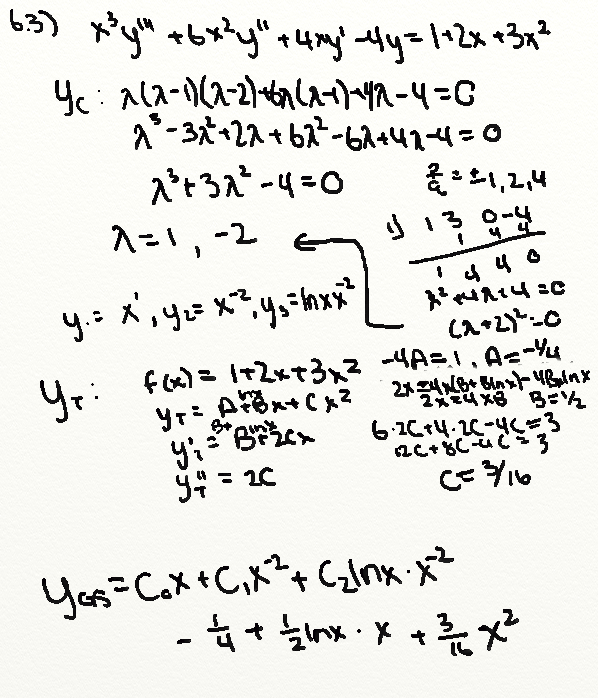 6.3) x³y''' + 6x²y'' + 4xy' - 4y = 1 + 2x + 3x²
y_c : λ(λ-1)(λ-2)+6λ(λ-1)+4λ-4=0
λ³-3λ²+2λ+6λ²-6λ+4λ-4=0
λ³+3λ²-4=0
λ=1, -2
p/q = ±1,2,4
1) 1 3 0 -4
1 4 4
1 4 4 0
λ²+4λ+4=0
(λ+2)²=0
y₁= x¹, y₂= x⁻², y₃= lnx x⁻²
y_T : f(x) = 1+2x+3x²
y_T = A+Blnx x+Cx²
y'_T = B+Blnx+2Cx
y''_T = 2C
-4A=1, A=-1/4
2x=4x(B+Blnx)-4Bxlnx
2x=4xB B=1/2
6·2C+4·2C-4C=3
12C+8C-4C=3
C= 3/16
y_GS = C₀x+C₁x⁻²+C₂lnx·x⁻²
- 1/4 + 1/2 lnx · x + 3/16 x²